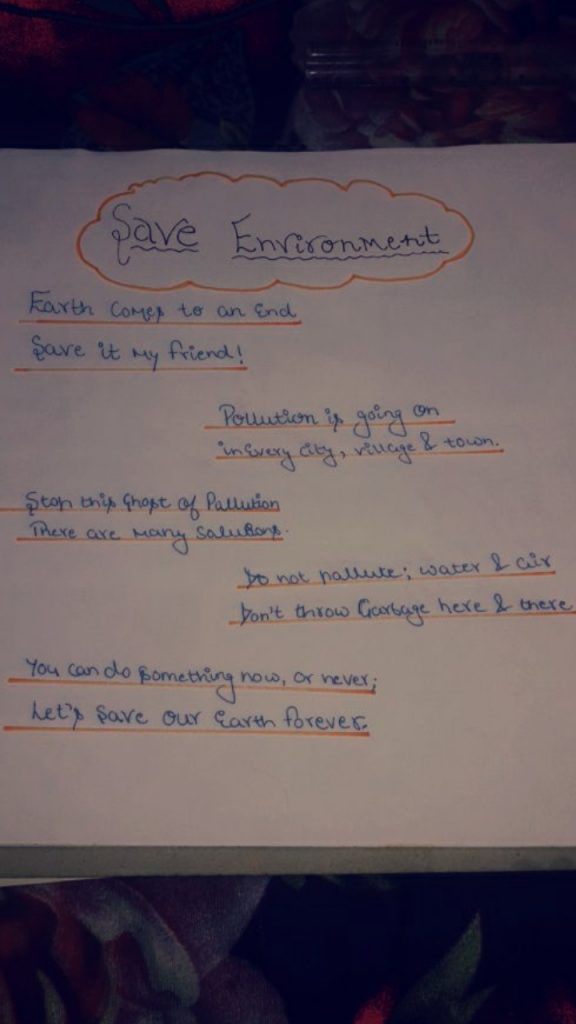 Save Environment
Earth Comes to an End
Save it My friend!
Pollution is going on
in Every City, village & town.
Stop this Ghost of Pallution
There are Many Solutions.
Do not pallute; water & air
Don't throw Garbage here & there
You can do Something now, or never;
Let's Save our Earth forever.